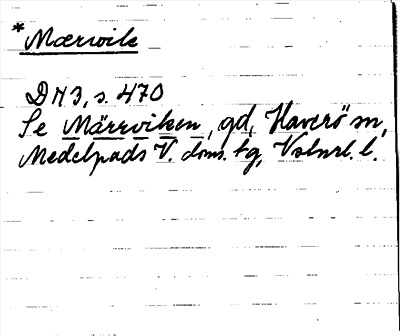 *Mærwik
DN3, s. 470
Se Märrviken, gd, Haverö sn,
Medelpads V. doms. tg, Vstnrl. l.